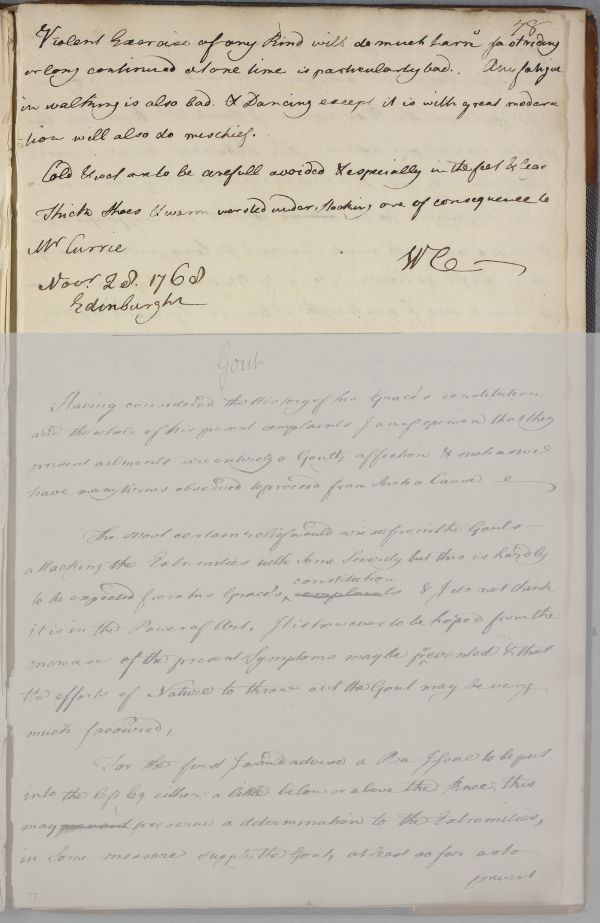 78
Violent Exercise of any Kind will do much harm so as riding
or long continued at one time is particularly bad. Any fatigue
in walking is also bad. & Dancing except it is with great modera
tion will also do mischief.
Cold & wet are to be carefull avoided & especially in the feet & legs
Thick Shoes & warm worsted under Stocking are of consequence to
Mr Currie
WC
Novr. 28. 1768
Edinburgh
Gout
Having considered the History of his Grace's constitution
and the whole of his present complaints I am of opinion that they
present ailments are entirely a Gouty affection & such as we
have many times observed to proceed from Such a Cause
The most certain relief would arise from the Gouts
attacking the Extremities with Some Severity but this is hardly
constitution
to be expected from his Grace's complaints & I do not think
it is in the Power of Art. It is however to be hoped from the
increase of the present Symptoms may be prevented & that
the efforts of Nature to throw out the Gout may be very
much favoured,
For the first I would advise a Pea Issue to be put
into the left leg either a little below or above the Knee, this
may prevent preserve a determination to the Extremities,
in Some measure supply the Gout, at least so far as to
prevent